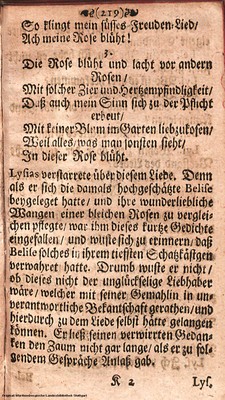 (219)
So klingt mein süsses Freuden-Lied/
Ach meine Rose blüht!
3.
Die Rose blüht und lacht vor andern
Rosen/
Mit solcher Zier und Hertzempfindligkeit/
Daß auch mein Sinn sich zu der Pflicht
erbeut/
Mit keiner Blum im Garten liebzukosen/
Weil alles/ was man sonsten sieht/
In dieser Rose blüht.
Lysias verstarrete über diesem Liede. Denn
als er sich die damals hochgeschätzte Belise
beygeleget hatte/ und ihre wunderliebliche
Wangen einer bleichen Rosen zu verglei-
chen pflegte/ war ihm dieses kurtze Gedichte
eingefallen/ und wuste sich zu erinnern/ daß
Belise solches in ihrem tiefsten Schatzkästgen
verwahret hatte. Drumb wuste er nicht/
ob dieses nicht der unglückselige Liebhaber
wäre/ welcher mit seiner Gemahlin in un-
verantwortliche Bekantschaft gerathen/ und
hierdurch zu dem Liede selbst hätte gelangen
können. Er ließ seinen verwirrten Gedan-
ken den Zaum nicht gar lange/ als er zu fol-
gendem Gespräche Anlaß gab.
K 2 Lys.